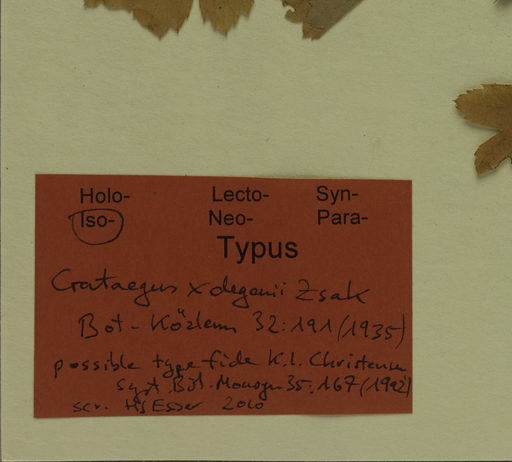 Holo- Lecto- Syn-
Iso- Neo- Para-
Typus
Crataegus x degenii Zsak
Bot. Közlem 32:191 (1935)
possible type fide K.I. Christensen
Syst. Bot. Monogr. 35:167 (1992)
scr. HJ Esser 2010